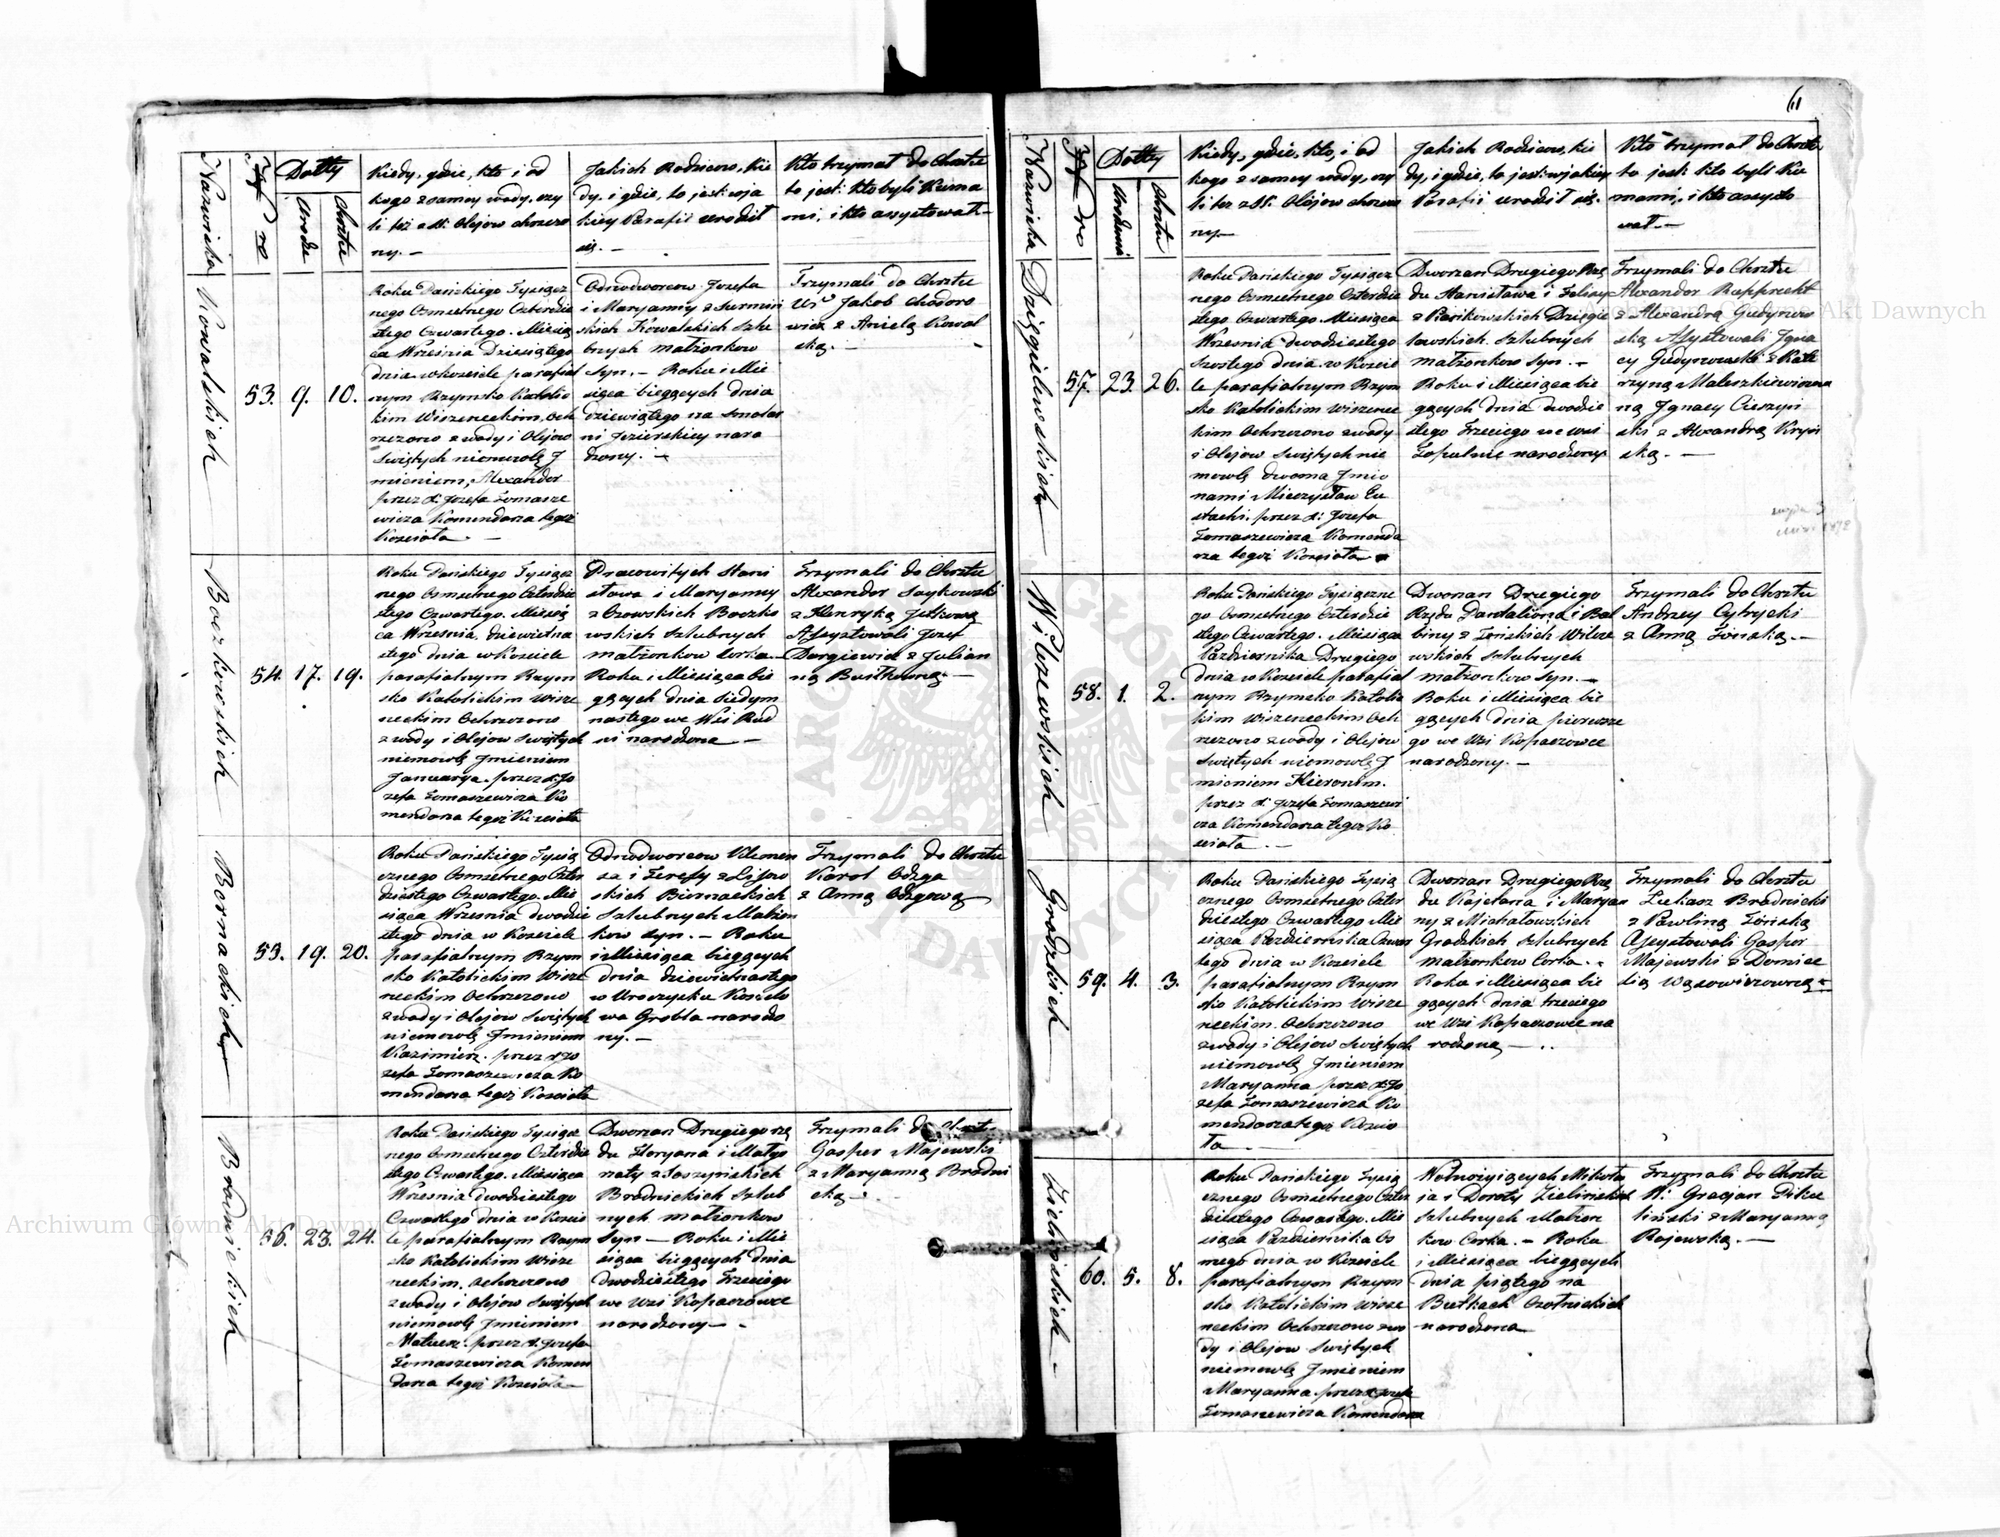 6
Nazwiska
Nro
Datty
Urodze
Chrztu
Kiedy, gdzie, kto i od
kogo z samey wody, czy
li też z SS. Olejow chrzczo
ny. —
Jakich Rodziców, kie
dy, i gdzie, to jest w ja
kiey Parafii urodził
się. —
Kto trzymał do Chrztu
to jest: kto byli Kuma
mi, i kto assystował. —
Kowalskich
53. 9. 10.
Roku Pańskiego Tysiącz
nego Osmsetnego Czterdzie
stego Czwartego. Miesią
ca Września Dziesiątego
dnia w Kosciele parafial
nym Rzymsko Katolic
kim Wiszneckim, och
rzczono z wody i Olejow
Swiętych niemowlę J
mieniem, Alexander
przez X: Jozefa Tomasze
wicza Komendarza tegoż
Kościoła. —
Odnodworcow Jozefa
i Maryanny z Surmin
skich Kowalskich Szlu
bnych małżonkow
Syn. — Roku i Mie
siąca bieżących dnia
dziewiątego na Smolar
ni Jezierskiey naro
dzony. —
Trzymali do Chrztu
Ur. Jakob Chodoro
wicz z Anielą Kowal
ską. —
Boczkowskich
54. 17. 19.
Roku Pańskiego Tysiącz
nego Osmsetnego Czterdzie
stego Czwartego. Miesią
ca Września, dziewietna
stego dnia w Kosciele
parafialnym Rzym
sko Katolickim Wisz
neckim Ochrzczono
z wody i Olejow Swiętych
niemowlę Jmieniem
Januarya. przez X: Jo
zefa Tomaszewicza Ko
mendarza tegoż Kościoła
Pracowitych Stani
sława i Maryanny
z Ozowskich Boczko
wskich Szlubnych
małżonkow Corka. —
Roku i Miesiąca bie
żących dnia Siedym
nastego we Wsi Rud
ni narodzona —
Trzymali do Chrztu
Alexander
z Henryką
Assystowali Jozef
Dargiewicz z Julian
ną —
Bernackich
55. 19. 20.
Roku Pańskiego Tysią
cznego Osmsetnego Czter
dziestego Czwartego. Mie
siąca Września dwudzie
stego dnia w Kosciele
parafialnym Rzym
sko Katolickim Wisz
neckim Ochrzczono
z wody i Olejow Swiętych
niemowlę Jmieniem
Kazimierz. przez X: Jo
zefa Tomaszewicza Ko
mendarza tegoż Kościoła
Odnodworcow Klemen
sa i Teresy z Lisow
skich Biernackich
Szlubnych Małżon
kow Syn. — Roku
i Miesiąca bieżących
dnia dziewietnastego
w Uroczysku
wa Grobla narodzo
ny. —
Trzymali do Chrztu
Karol Odzga
z Anną Odzgową
Brodnickich
56. 23. 24.
Roku Pańskiego Tysiącz
nego Osmsetnego Czterdzie
stego Czwartego. Miesiąca
Września dwudziestego
Czwartego dnia w Kosci
le parafialnym Rzym
sko Katolickim Wisz
neckim. ochrzczono
z wody i Olejow Swiętych
niemowlę Jmieniem
Mateusz: przez X: Jozefa
Tomaszewicza Komen
darza tegoż Kościoła —
Dworzan Drugiego rzę
du Floryana i Małgo
rzaty z
Brodnickich Szlub
nych małżonkow
Syn — Roku i Mie
siąca bieżących dnia
dwudziestego Trzeciego
we Wsi Kopaczówce
narodzony —
Trzymali do Chrztu
Gasper Majewski
z Maryanną Brodni
cką.
Nazwiska
Nro
Datty
Urodzenia
Chrztu
Kiedy, gdzie, kto, i od
kogo z samey wody, czy
li też z SS. Olejow chrzczo
ny. —
Jakich Rodziców, kie
dy, i gdzie, to jest w jakiey
Parafii urodził się. —
Kto trzymał do Chrztu
to jest: kto byli Ku
mami, i kto assysto
wał. —
Dzięgielewskich
57. 23. 26.
Roku Pańskiego Tysiącz
nego Osmsetnego Czterdzie
stego Czwartego. Miesiąca
Września dwudziestego
Szostego dnia w Kosciel
le parafialnym Rzym
sko Katolickim Wisznec
kim Ochrzczono z wody
i Olejow Swiętych nie
mowlę dwoma Jmio
nami Mieczysław Eu
stachi. przez X: Jozefa
Tomaszewicza Komenda
rza tegoż Kościoła —
Dworzan Drugiego Rzę
du Stanisława i Felicyi
z Dzięgie
lewskich. Szlubnych
małżonkow Syn. —
Roku i Miesiąca bie
żących dnia dwudzie
stego Trzeciego we wsi
narodzony
Trzymali do Chrztu
Alexander Rupprecht
z Alexandrą Gudynow
ską Assystowali Igna
cy Gudynowski z Kata
rzyną Maleszkiewiczow
ną Jgnacy Cieszyń
ski z Alexandrą Kryń
ską. —
Wilczewskich
58. 1. 2.
Roku Pańskiego Tysiączne
go Osmsetnego Czterdzie
stego Czwartego. Miesiąca
Października Drugiego
dnia w Kosciele parafial
nym Rzymsko Katolic
kim Wiszneckim Och
rzczono z wody i Olejow
Swiętych niemowlę J
mieniem Hieronim.
przez X: Jozefa Tomaszewi
cza Komendarza tegoż Ko
ścioła. —
Dworzan Drugiego
Rzędu Pantaliona i Bal
biny z Wilcze
wskich Szlubnych
małżonkow Syn. —
Roku i Miesiąca bie
żących dnia pierwsze
go we Wsi Kopaczowce
narodzony. —
Trzymali do Chrztu
Andrzey Cytrycki
z Anną —
Grodzkich
59. 4. 3.
Roku Pańskiego Tysią
cznego Osmsetnego Czter
dziestego Czwartego. Mie
siąca Października Czwar
tego dnia w Kosciele
parafialnym Rzym
sko Katolickim Wisz
neckim. Ochrzczono
z wody i Olejow Swiętych
niemowlę Jmieniem
Maryanna przez X: Jo
zefa Tomaszewicza Ko
mendarza tegoż Koscio
ła —
Dworzan Drugiego Rzę
du Kajetana i Maryan
ny z Michałowskich
Grodzkich Szlubnych
małżonkow Corka. —
Roku i Miesiąca bie
żących dnia trzeciego
we Wsi Kopaczowce na
rodzona —
Trzymali do Chrztu
Łukasz Brodnicki
z Pawliną
Assystowali Gasper
Majewski z Domice
lią Wąsowiczowną
Zielinskich
60. 5. 8.
Roku Pańskiego Tysią
cznego Osmsetnego Czter
dziestego Czwartego. Mie
siąca Października Os
mego dnia w Kosciele
parafialnym Rzym
sko Katolickim Wisz
neckim Ochrzczono z wo
dy i Olejow Swiętych
niemowlę Jmieniem
Maryanna. przez X: Jozefa
Tomaszewicza Komendarza
Wolnożyjących Mikoła
ja i Doroty Zielinskich
Szlubnych Małżon
kow Corka. — Roku
i Miesiąca bieżących
dnia piątego na
Budkach
narodzona
Trzymali do Chrztu
W: Gracyan
z Maryanną
Rajewską. —
Archiwum Główne Akt Dawnych
Archiwum Główne Akt Dawnych
ARCHIWUM GŁÓWNE AKT DAWNYCH